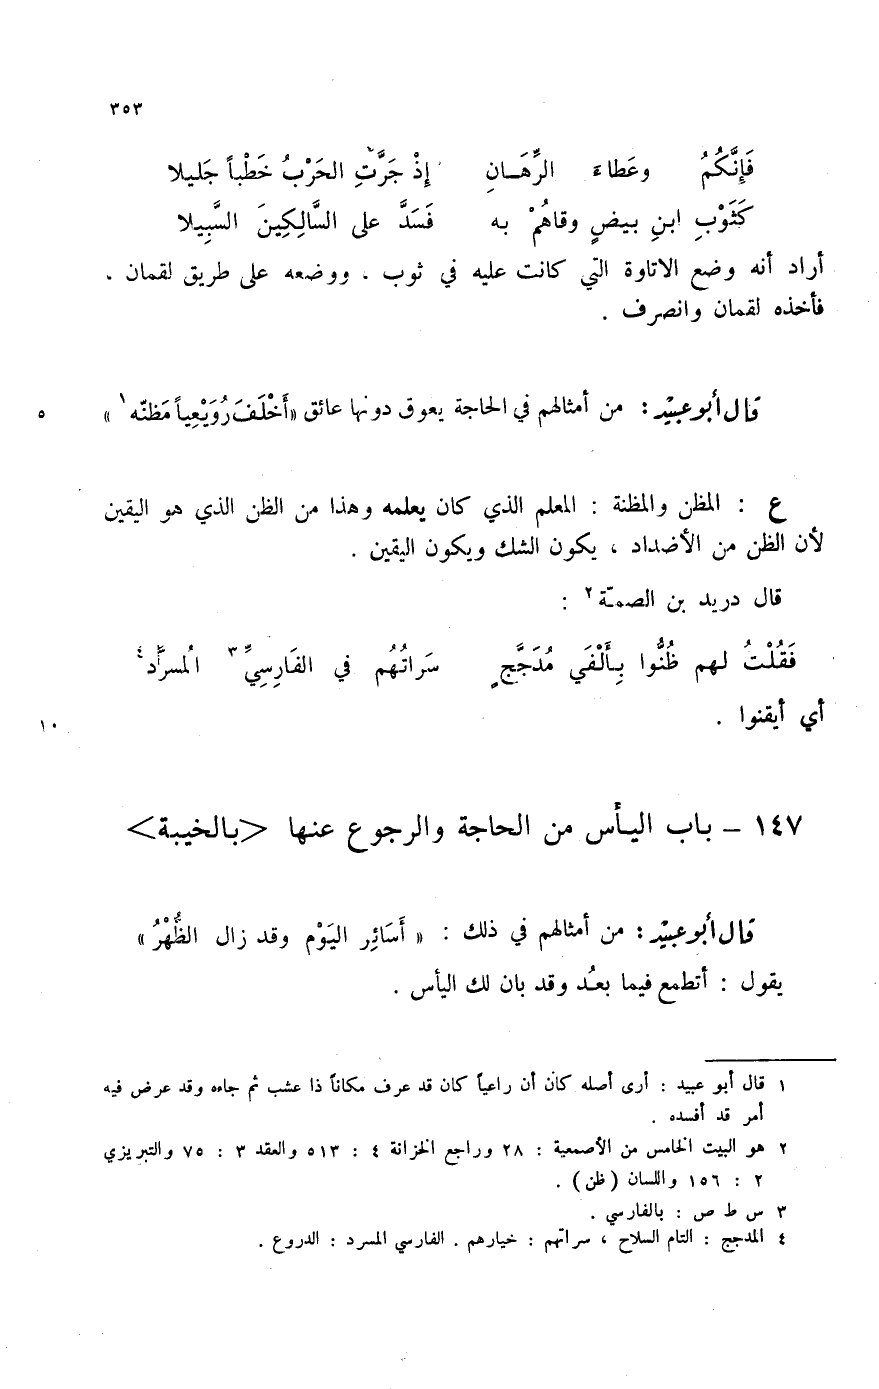 ٣٥٣
فَإِنَّكُمُ وعَطاءَ الرِّهَـانِ إِذْ جَرَّتِ الحَرْبُ خَطْباً جَليلا
كَثَوْبِ ابنِ بيضٍ وقاهُمْ به فَسَدَّ على السَّالِكِينَ السَّبِيلا
أراد أنه وضع الاتاوة التي كانت عليه في ثوب ، ووضعه على طريق لقمان .
فأخذه لقمان وانصرف .
قال أبو عبيد : من أمثالهم في الحاجة يعوق دونها عائق «أَخْلَفَ رُوَيْعِياً مَظنّه ١ » ٥
ع : المظن والمظنة : المعلم الذي كان يعلمه وهذا من الظن الذي هو اليقين
لأن الظن من الأضداد ، يكون الشك ويكون اليقين .
قال دريد بن الصمـّة ٢ :
فَقُلْتُ لهم ظُنُّوا بِـأَلْفَي مُدَجَّجٍ سَراتُهُم في الفَارِسِيِّ ٣ المُسرَّد ٤
أي أيقنوا . ١٠
١٤٧ – باب اليـأس من الحاجة والرجوع عنها <بالخيبة>
قال أبو عبيد : من أمثالهم في ذلك : « أَسَائِر اليَوْم وقد زال الظُّهْرُ »
يقول : أتطمع فيما بعـُد وقد بان لك اليأس .
١ قال أبو عبيد : أرى أصله كان أن راعياً كان قد عرف مكاناً ذا عشب ثم جاءه وقد عرض فيه
أمر قد أفسده .
٢ هو البيت الخامس من الأصمعية : ٢٨ وراجع الخزانة ٤ : ٥١٣ والعقد ٣ : ٧٥ والتبريزي
٢ : ١٥٦ واللسان ( ظن ) .
٣ س ط ص : بالفارسي .
٤ المدجج : التام السلاح ، سراتهم : خيارهم . الفارسي المسرد : الدروع .